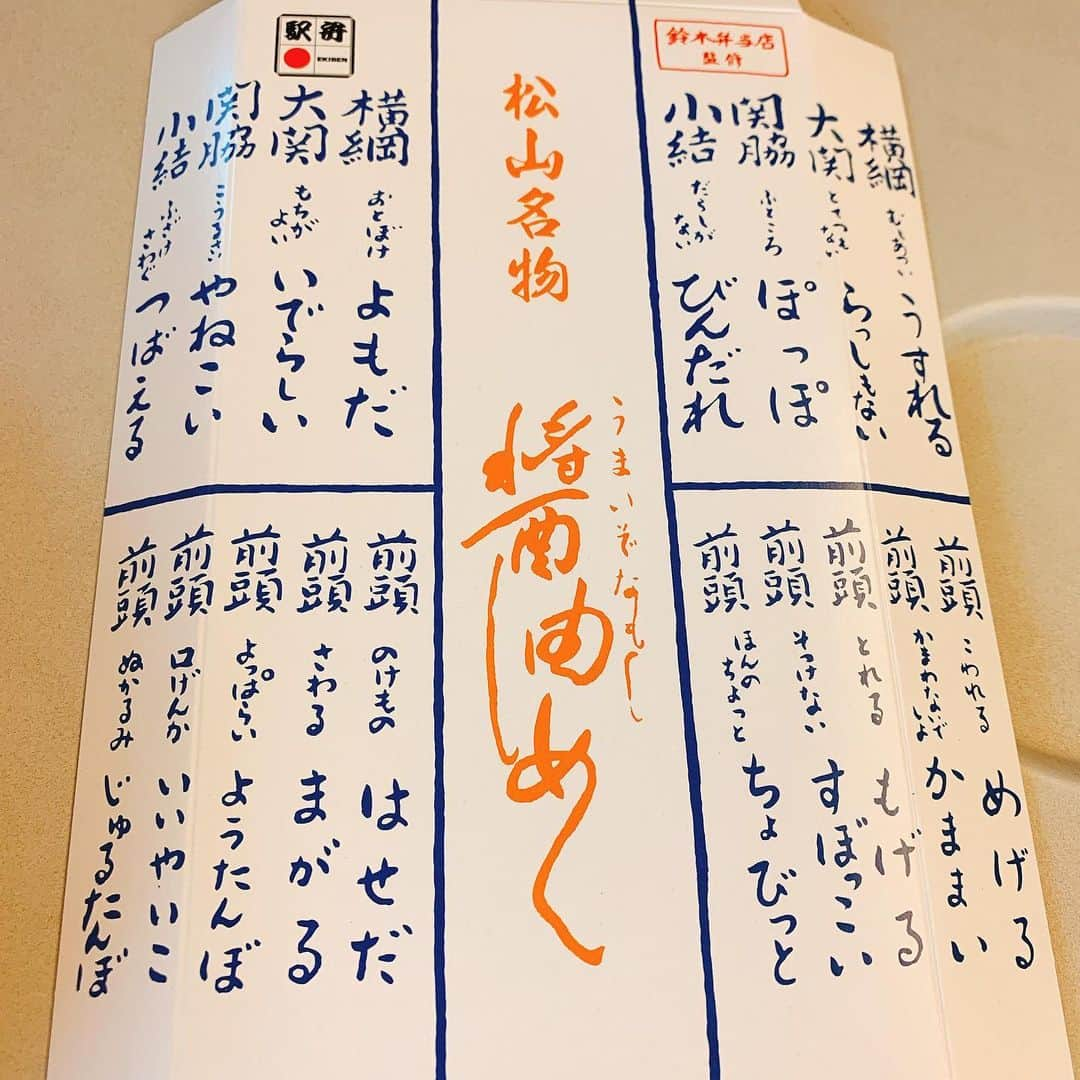 鈴木弁当店
監修
横綱 むしあつい うすれる
大関 とてつもない らっしもない
関脇 ふところ ぽっぽ
小結 だらしがない びんだれ
前頭 こわれる めげる
前頭 かまわないでいいよ かままい
前頭 とれる もげる
前頭 そっけない すぼっこい
前頭 ほんのちょっと ちょびっと
松山名物
うまいぞなもし
醤油めし
駅弁
EKIBEN
横綱 おとぼけ よもだ
大関 もちがよい いでらしい
関脇 こうるさい やねこい
小結 ふざけさわぐ つばえる
前頭 のけもの はせだ
前頭 さわる まがる
前頭 よっぱらい ようたんぼ
前頭 口げんか いいやいこ
前頭 ぬかるみ じゅるたんぼ